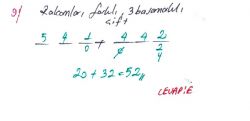 9) Rakamları farklı, 3 basamaklı,
çift
5 4 1 + 4 4 2
0 0 2
4
20 + 32 = 52//
CEVAP: E